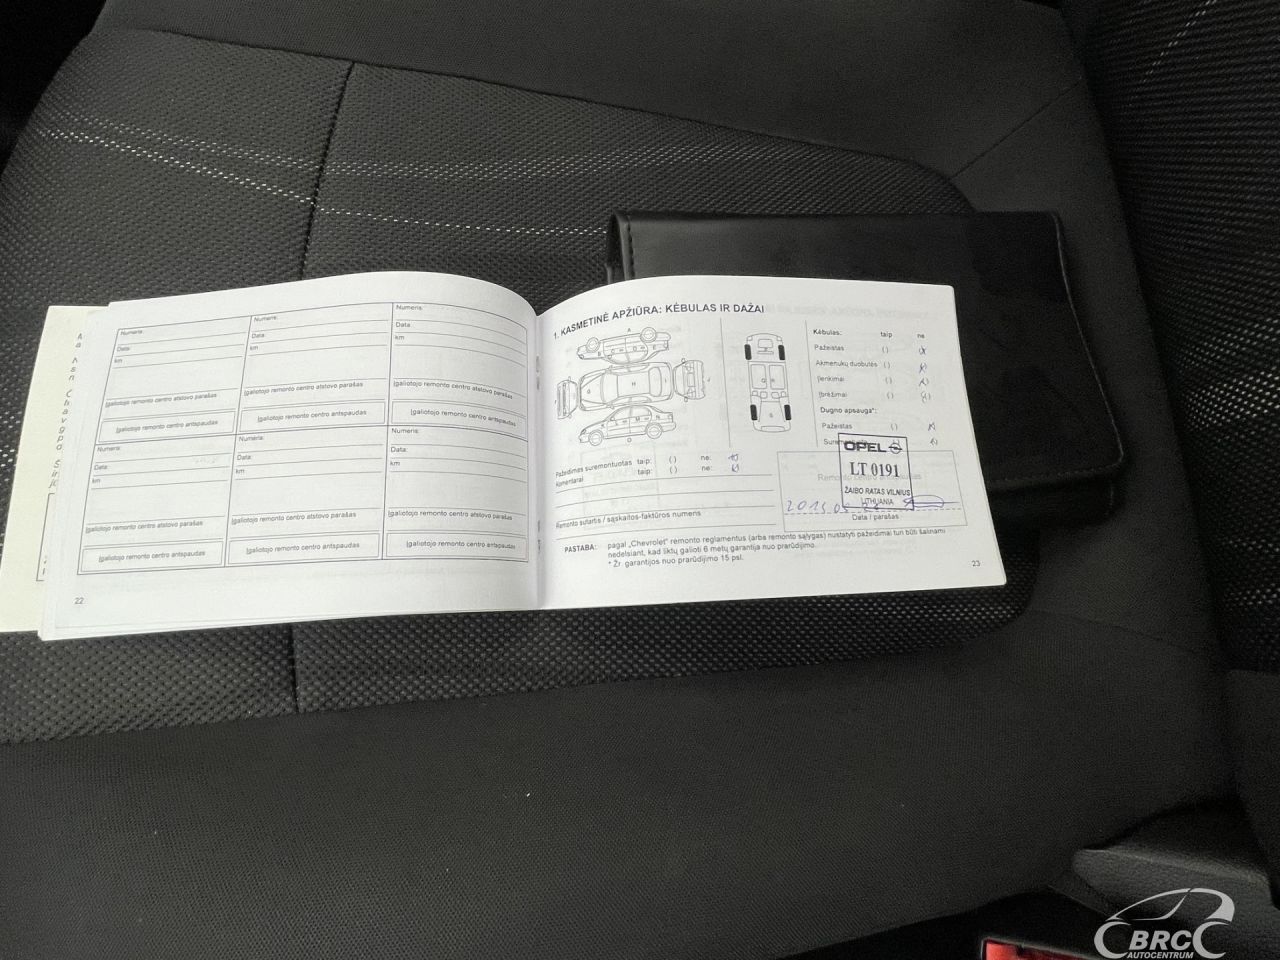 Numeris:
Data:
km
Įgaliotojo remonto centro atstovo parašas
Įgaliotojo remonto centro antspaudas
Numeris:
Data:
km
Įgaliotojo remonto centro atstovo parašas
Įgaliotojo remonto centro antspaudas
Numeris:
Data:
km
Įgaliotojo remonto centro atstovo parašas
Įgaliotojo remonto centro antspaudas
Numeris:
Data:
km
Įgaliotojo remonto centro atstovo parašas
Įgaliotojo remonto centro antspaudas
Numeris:
Data:
km
Įgaliotojo remonto centro atstovo parašas
Įgaliotojo remonto centro antspaudas
Numeris:
Data:
km
Įgaliotojo remonto centro atstovo parašas
Įgaliotojo remonto centro antspaudas
22
1. KASMETINĖ APŽIŪRA: KĖBULAS IR DAŽAI
Kėbulas: taip ne
Pažeistas ( ) (x)
Akmenukų duobutės ( ) (x)
Įlenkimai ( ) (x)
Įbrėžimai ( ) (x)
Dugno apsauga*:
Pažeistas ( ) (x)
( ) (x)
Pažeidimas suremontuotas taip: ( ) ne: (x)
Komentarai taip: ( ) ne: (x)
Remonto sutartis / sąskaitos-faktūros numeris
OPEL
LT 0191
ŽAIBO RATAS VILNIUS
LITHUANIA
Data / parašas
PASTABA: pagal „Chevrolet“ remonto reglamentus (arba remonto sąlygas) nustatyti pažeidimai turi būti šalinami
nedelsiant, kad liktų galioti 6 metų garantija nuo prarūdijimo.
* Žr. garantijos nuo prarūdijimo 15 psl.
23
BRC
AUTOCENTRUM